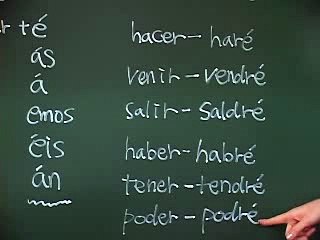 r + é
ás
á
emos
éis
án
hacer - haré
venir - vendré
salir - saldré
haber - habré
tener - tendré
poder - podré